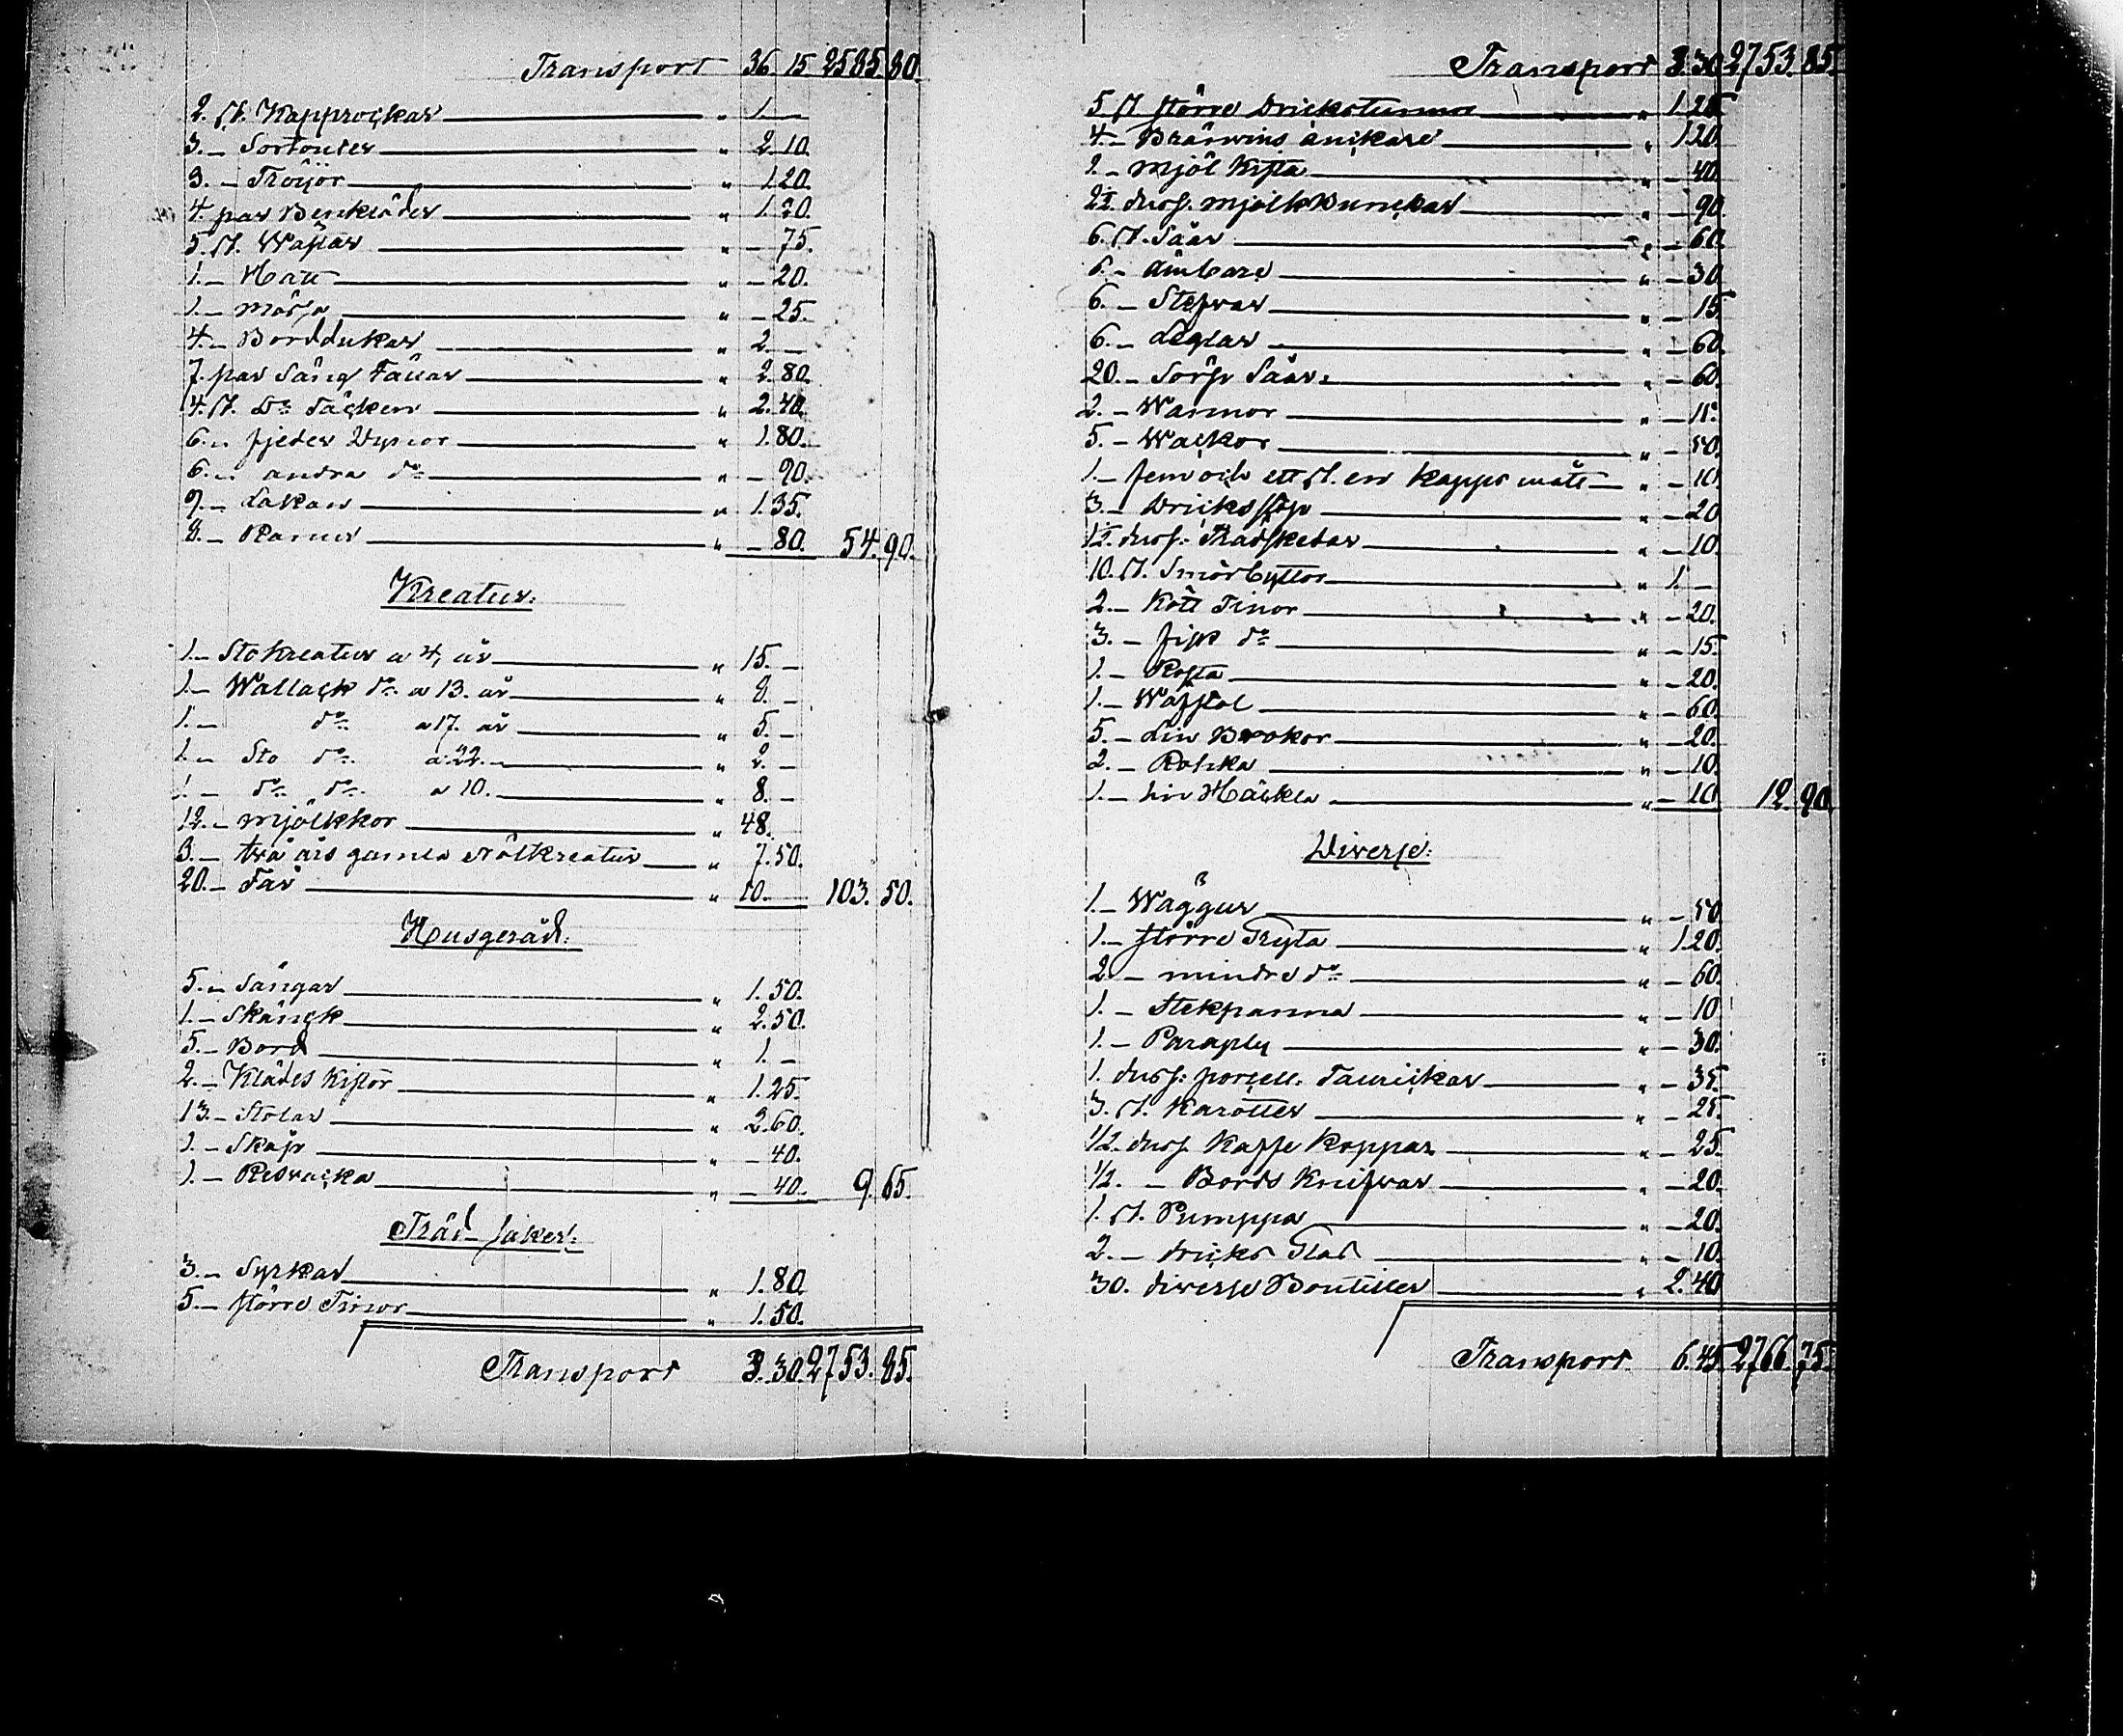 Transport 36. 15. 2585. 80.
2. st. Kapprockar " 1. —
3. — Sortouter " 2. 10.
3. — Tröijor " 1. 20.
4. par Benkläder " 1. 20.
5. st. Wästar " — 75.
1. — Hatt " — 20.
1. — Mössa " — 25.
4. — Borddukar " 2. —
7. par Säng Fällar " 2. 80.
4. st. D:o Täcken " 2. 40.
6. " fjeder Dynor " 1. 80.
6. " andra d:o " — 90.
9. — Lakan " 1. 35.
8. — Raner " — 80. 54. 90.
Kreatur:
1. — Sto Kreatur a 4, år " 15. —
1. — Wallack d:o a 13. år " 8. —
1. — d:o a 17. år " 5. —
1. — Sto d:o a 22. — " 2. —
1. — d:o d:o a 10. — " 8. —
12. — Mjölkkor " 48.
3. — två års gamla Nötkreatur " 7. 50.
20. — Får " 10. — 103. 50.
Husgeråd:
5. — Sängar " 1. 50.
1. — Skänck " 2. 50.
5. — Bord " 1. —
2. — Klädes Kistor " 1. 25.
13. — Stolar " 2. 60.
1. — Skåp " — 40.
1. — " — 40. 9. 65.
Träd saker:
3. — Syrkar " 1. 80.
5. — större Tinor " 1. 50.
Transport 3. 30. 2753. 85.
Transport 3. 30. 2753. 85.
5. st. större Drickstunnor " 1. 25.
4. — Bränwins ankare " 1. 20.
1. — Mjöl Kista " — 40.
2½. duss. Mjölk Bunckar " — 90.
6. st. Såar " — 60.
6. — Ämbare " — 30.
6. — Stefvar " — 15.
6. — Leglar " — 60.
20. — Sörp Såar " — 60.
2. — Wannor " — 15.
5. — Wackor " — 50.
1. — fem och ett st. en Kappe mått " — 10.
3. — Dricks stop " — 20.
½. duss. Trädskedar " — 10.
10. st. Smörbyttor " 1. —
2. — Kött Tinor " — 20.
3. — fisk d:o " — 15.
1. — " — 20.
1. — Wäfstol " — 60.
5. — Lin Brokor " — 20.
2. — " — 10.
1. — Lin Häckla " — 10. 12. 90.
Diverse:
1. — Wäggur " — 50.
1. — större Gryta " 1. 20.
2. — mindre d:o " — 60.
1. — Stekpanna " — 10.
1. — Paraply " — 30.
1. duss. porcell. Tallrickar " — 35.
3. st. Karotter " — 25.
1/2. duss. Kaffe Koppar " — 25.
1/2. — Bords Knifvar " — 20.
1. st. Pumppa " — 20.
2. — dricks Glas " — 10.
30. diverse Boutiller " 2. 40.
Transport. 6. 45. 2766. 75.